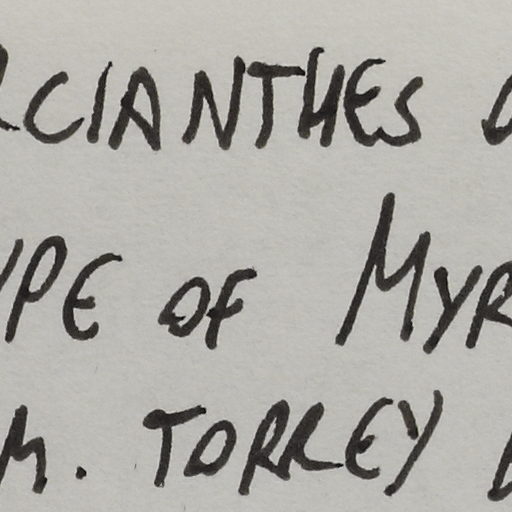 RCIANTHES
YPE OF MYR
M. TORREY